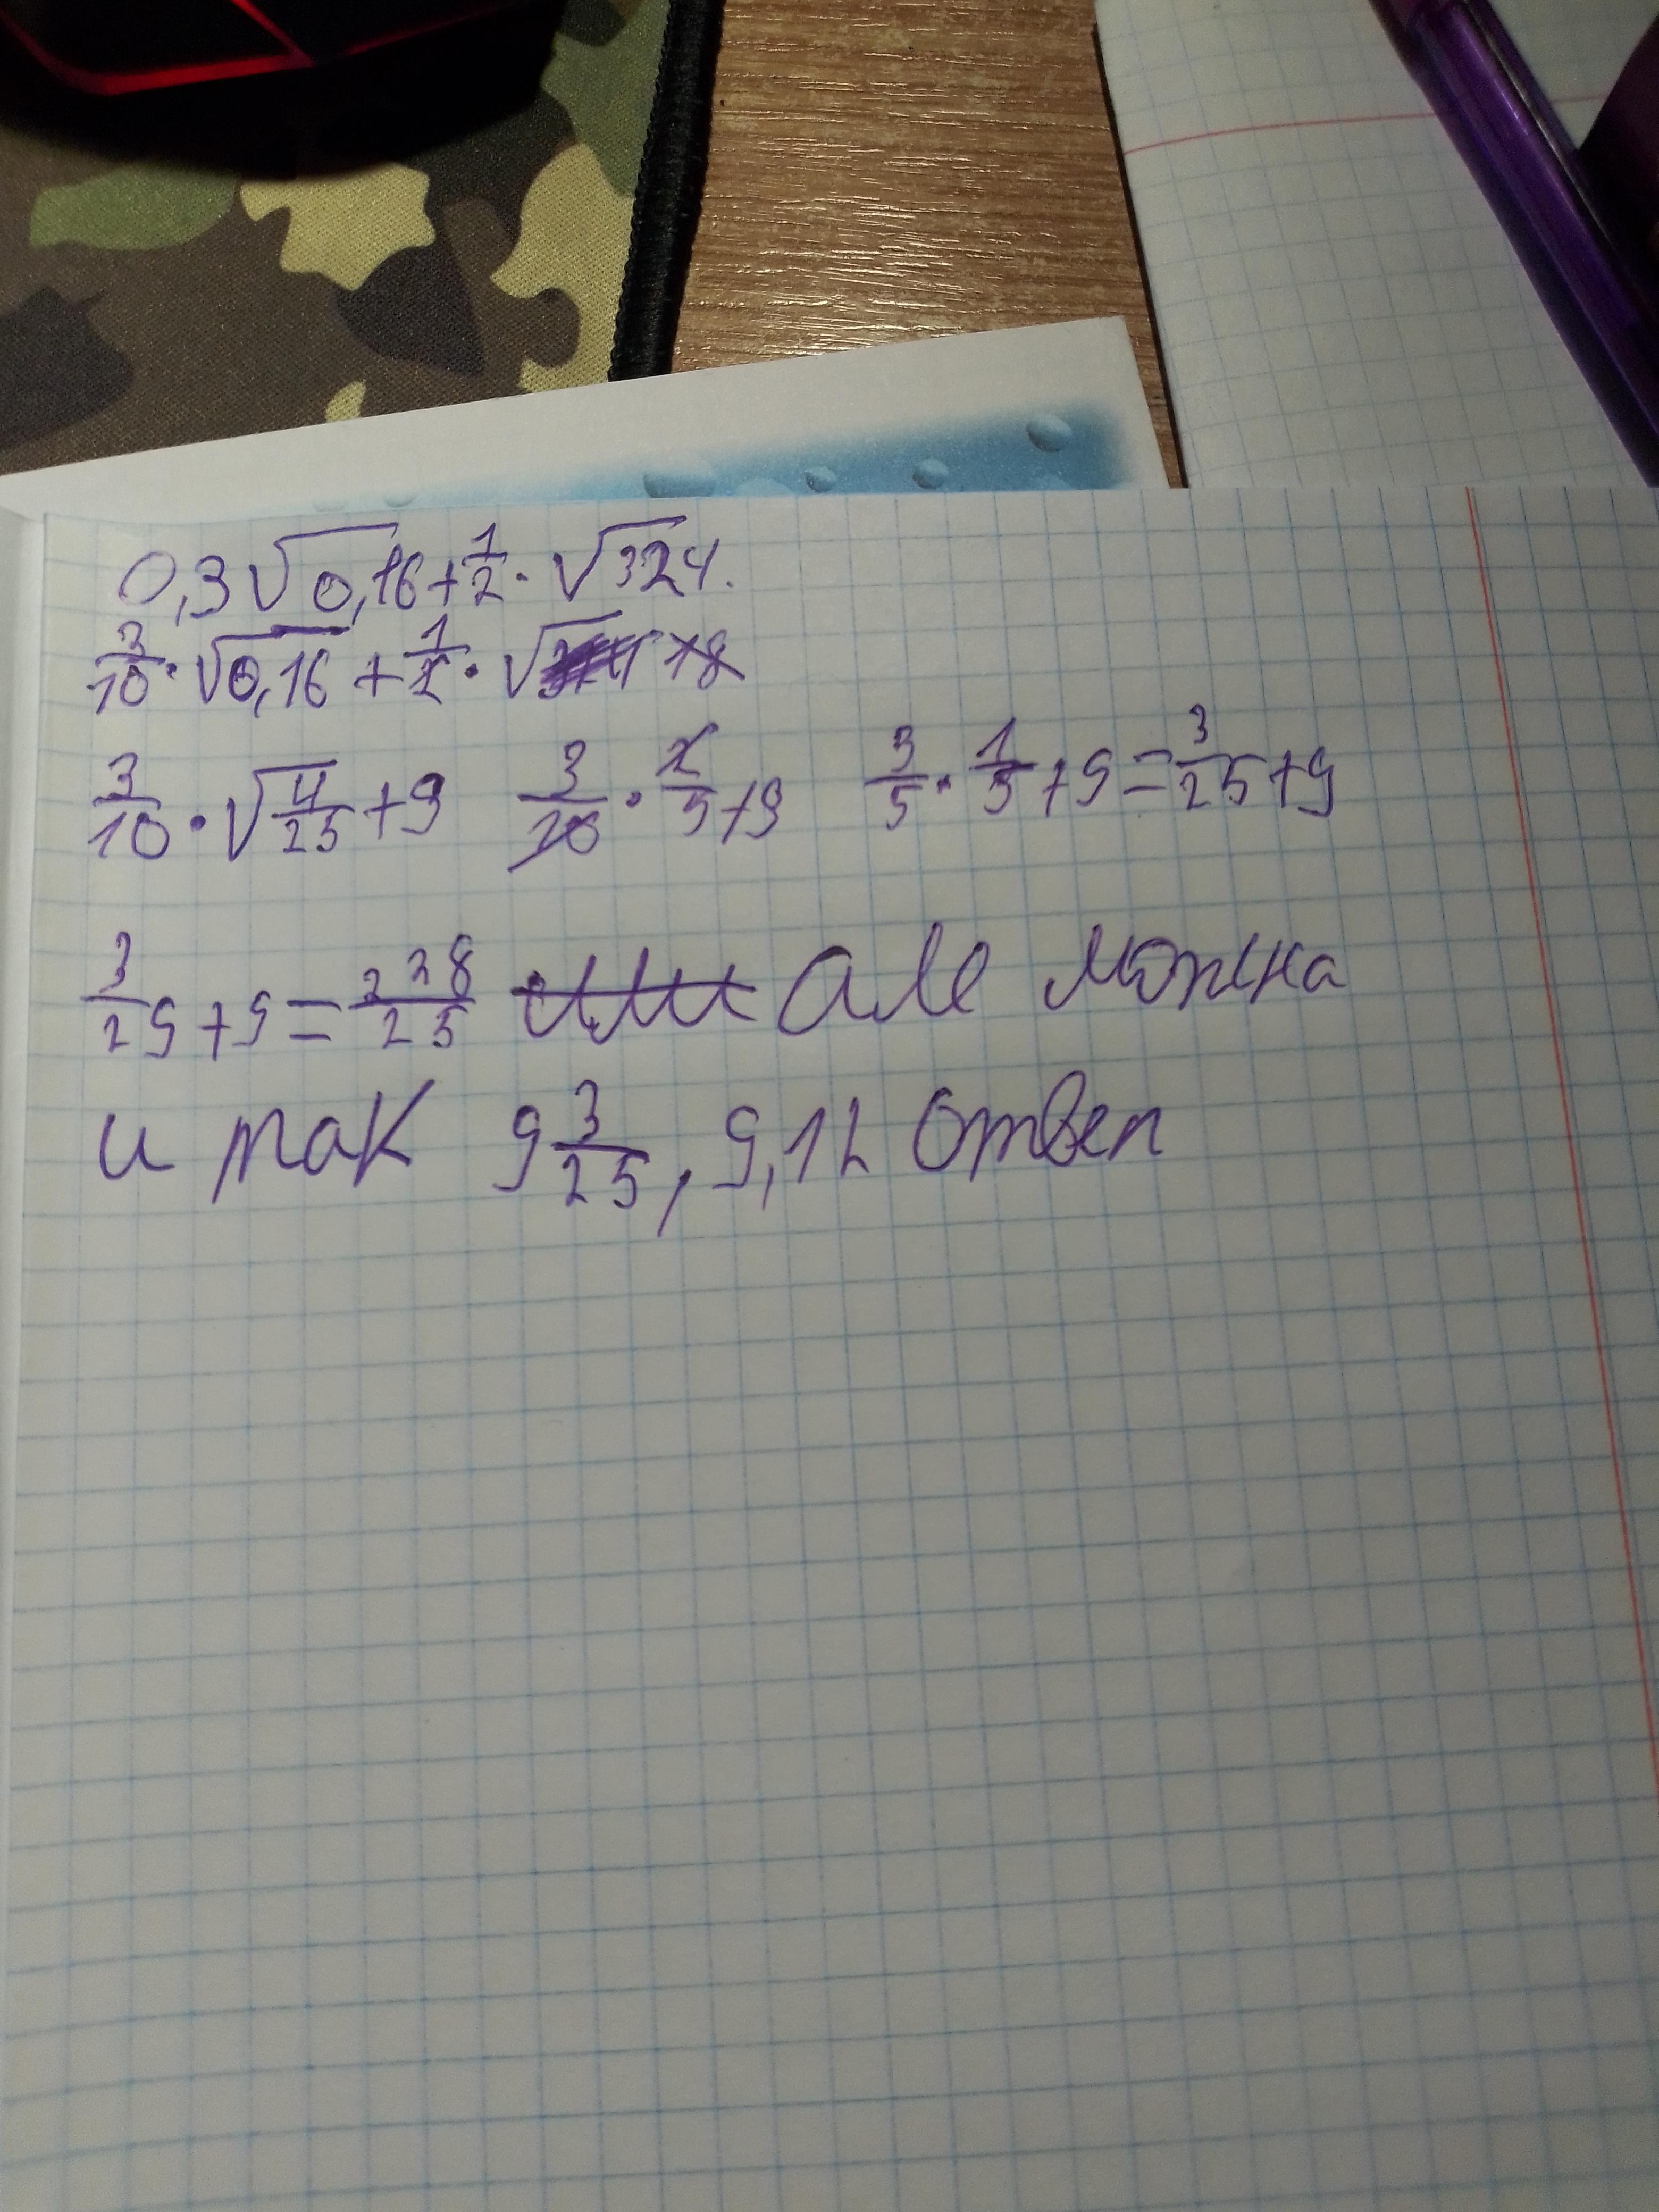 0,3√0,16+1/2·√324.
3/10·√0,16+1/2·√ 18
3/10·√4/25+9 3/10·2/5+9 3/5·1/5+9=3/25+9
3/25+9=228/25 или але можна
и так 9 3/25, 9,12 ответ